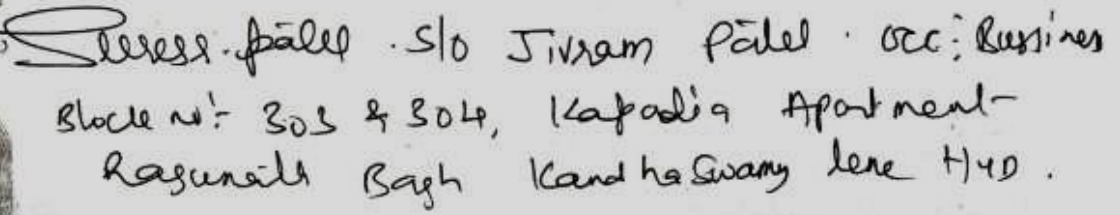 Suresh. pātel . S/o Jivram Pātel . occ: Bussines
Block no:- 303 & 304, Kapadia Apartment-
Ragunath Bagh Kandha Swamy lene HYD .